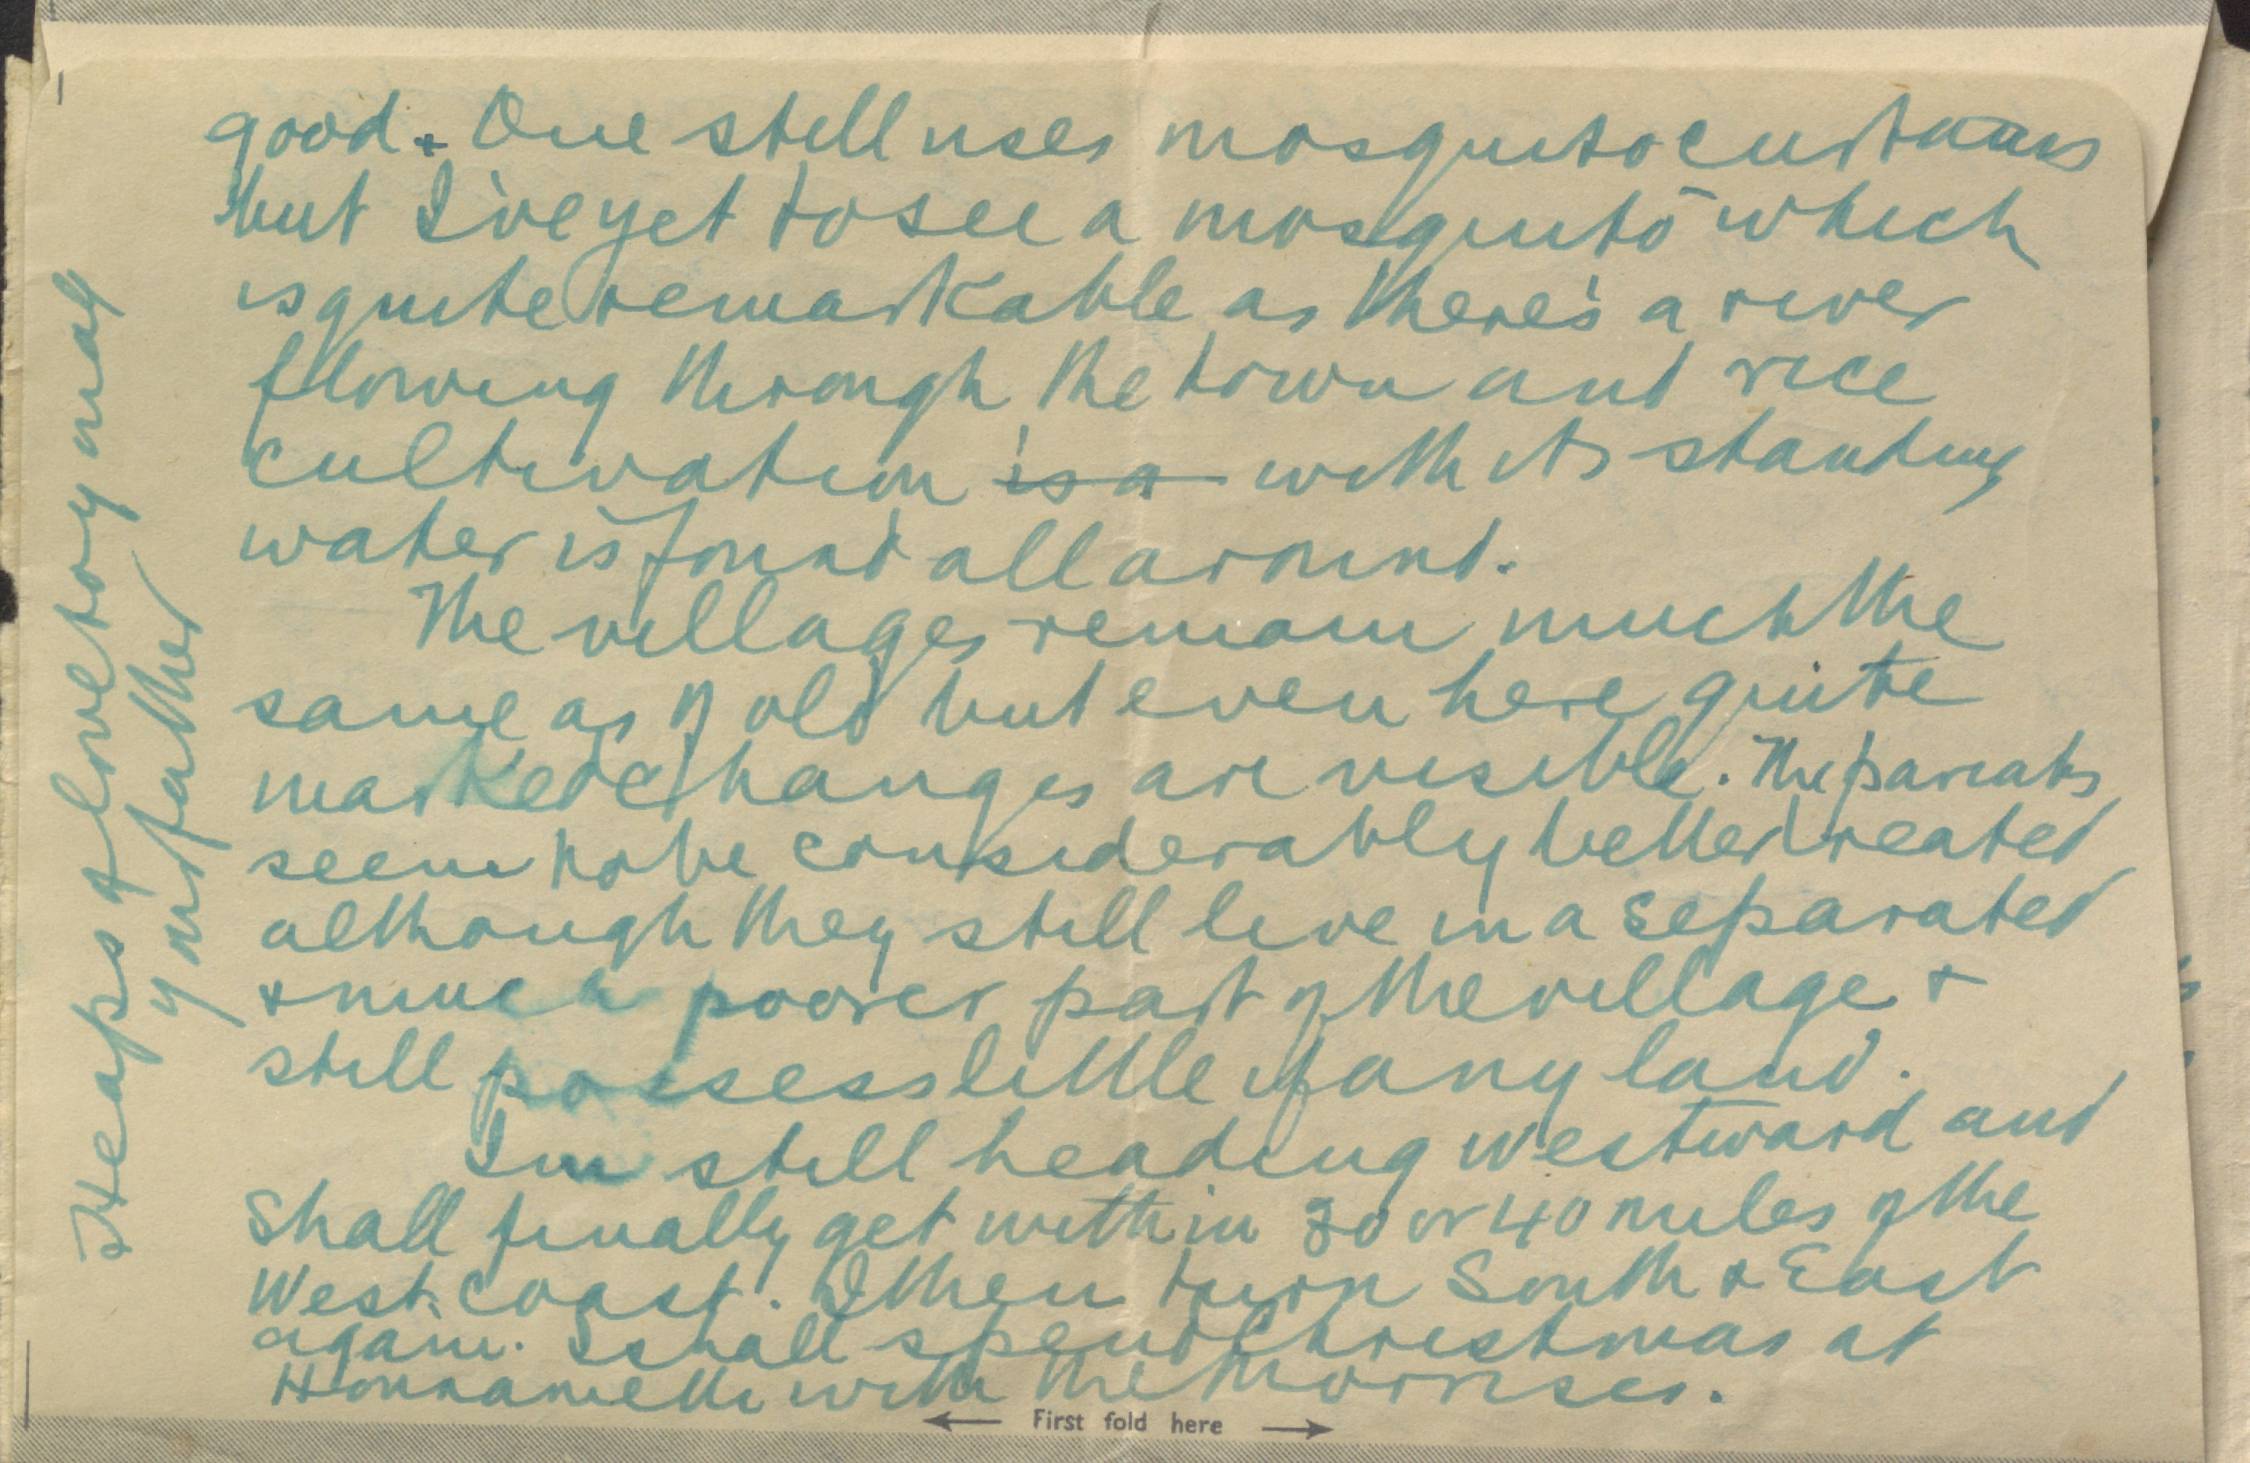 good. One still uses mosquito curtains
but I've yet to see a mosquito which
is quite remarkable as there's a river
flowing through the town and rice
cultivation is a with its standing
water is found all around.
The villages remain much the
same as of old but even here quite
marked changes are visible. The pariahs
seem to be considerably better treated
although they still live in a separated
& much poorer part of the village &
still possess little if any land.
I'm still heading westward and
shall finally get within 30 or 40 miles of the
West coast. I then turn South & East
again. I shall spend Christmas at
Honnametti with the Morrises.
First fold here
Heaps of love to y
your father